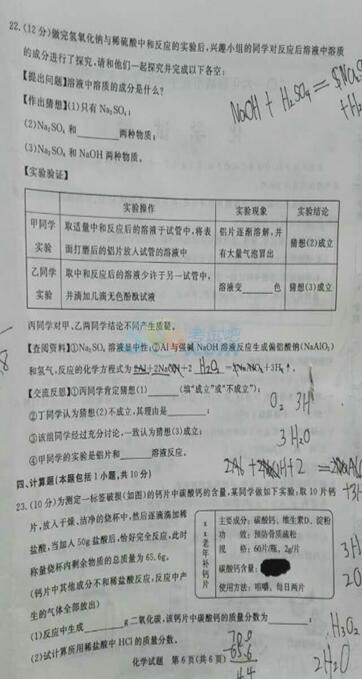 22.(12分)做完氢氧化钠与稀硫酸中和反应的实验后,兴趣小组的同学对反应后溶液中溶质
的成分进行了探究,请和他们一起探究并完成以下各空:
【提出问题】溶液中溶质的成分是什么?
NaOH + H₂SO₄ =
【作出猜想】(1)只有Na₂SO₄;
(2)Na₂SO₄ 和______两种物质;
(3)Na₂SO₄ 和 NaOH 两种物质。
【实验验证】
实验操作 实验现象 实验结论
甲同学 取适量中和反应后的溶液于试管中,将表 铝片逐渐溶解,并 猜想(2)成立
实验 面打磨后的铝片放入试管的溶液中 有大量气泡冒出
乙同学 取中和反应后的溶液少许于另一试管中, 溶液变______色 猜想(3)成立
实验 并滴加几滴无色酚酞试液
丙同学对甲、乙两同学结论不同产生质疑。
【查阅资料】①Na₂SO₄ 溶液显中性;②Al与强碱NaOH溶液反应生成偏铝酸钠(NaAlO₂)
和氢气,反应的化学方程式为 2Al+2NaOH+2 H₂O = 2NaAlO₂+3H₂↑。
【交流反思】①丙同学肯定猜想(1)______(填“成立”或“不成立”);
②丁同学认为猜想(2)不成立,其理由是______;
③该组同学经过充分讨论,一致认为猜想(3)成立;
④甲同学的实验是铝片和______溶液反应。
O₂ 3H
3H₂O
四、计算题(本题包括1小题,共10分)
23.(10分)为测定一标签破损(如图)的钙片中碳酸钙的含量,某同学做如下实验,取10片钙
片,放入干燥、洁净的烧杯中,然后逐滴滴加稀
盐酸,当加入50g盐酸后,恰好完全反应,此时
称量烧杯内剩余物质的总质量为65.6g。
(钙片中其他成分不和稀盐酸反应,反应中产
生的气体全部放出)
××老年补钙片
主要成分:碳酸钙、维生素D、淀粉
功 效:预防骨质疏松
规 格:60片/瓶,2g/片
碳酸钙含量:
使用方法:咀嚼,每日两片
(1)反应中生成______g二氧化碳,该钙片中碳酸钙的质量分数为______;
(2)试计算所用稀盐酸中HCl的质量分数。
70.0
65.6
4.4
H₂O₂
2H₂O
化学试题 第6页(共6页)